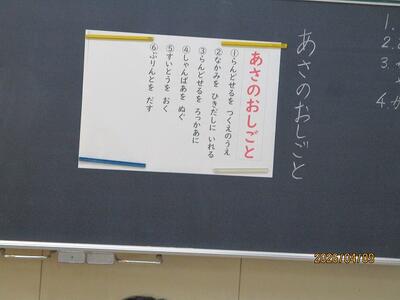 あさのおしごと
あさのおしごと
①らんどせるを つくえのうえ
②なかみを ひきだしに いれる
③らんどせるを ろっかあに
④しゃんぱあを ぬぐ
⑤すいとうを おく
⑥ぷりんとを だす
1.
2.
3.
4.